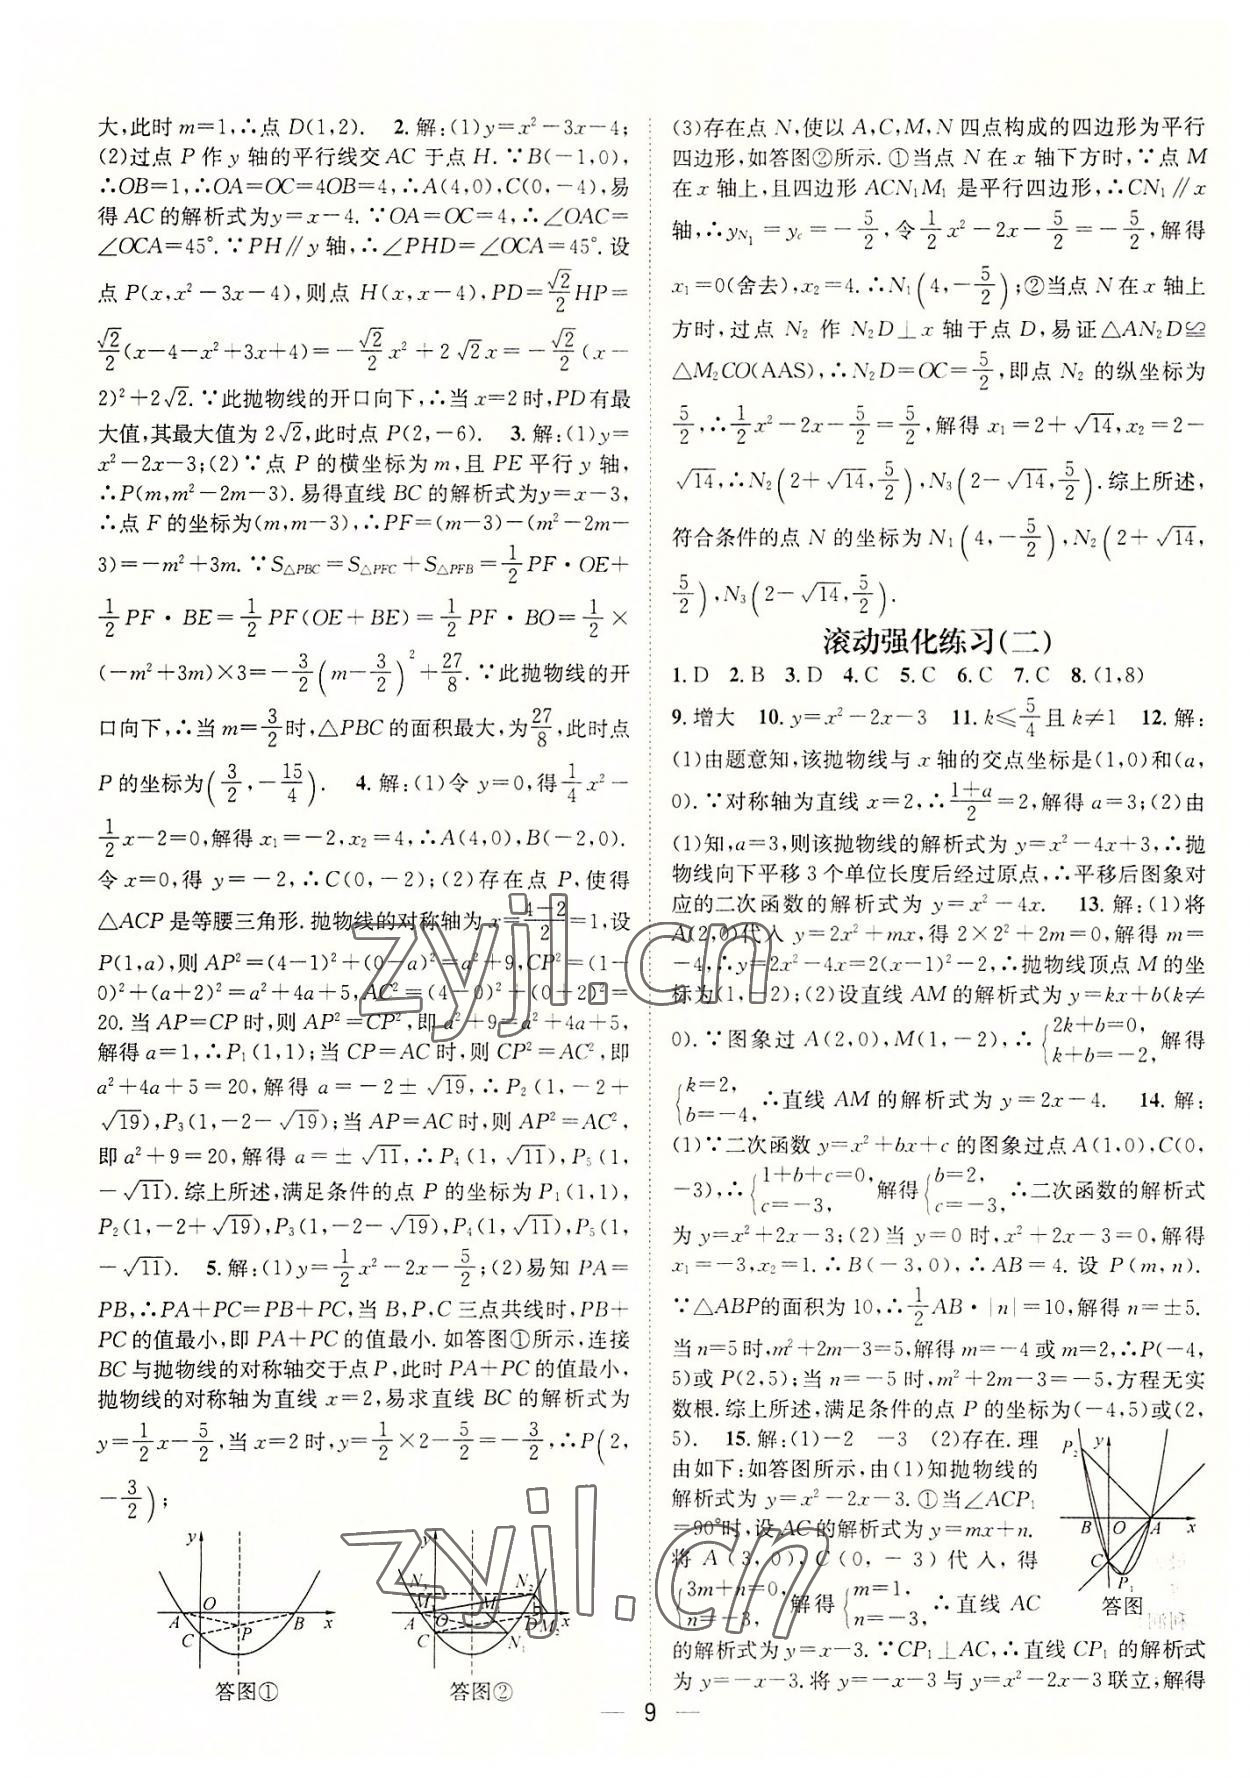 大,此时 m=1,∴点 D(1,2). 2.解:(1)y=x²-3x-4;
(2)过点 P 作 y 轴的平行线交 AC 于点 H.∵B(-1,0),
∴OB=1,∴OA=OC=4OB=4,∴A(4,0),C(0,-4),易
得 AC 的解析式为y=x-4.∵OA=OC=4,∴∠OAC=
∠OCA=45°.∵PH∥y 轴,∴∠PHD=∠OCA=45°.设
点 P(x,x²-3x-4),则点 H(x,x-4),PD=√2/2HP=
√2/2(x-4-x²+3x+4)=-√2/2x²+2√2x=-√2/2(x-
2)²+2√2.∵此抛物线的开口向下,∴当 x=2 时,PD有最
大值,其最大值为 2√2,此时点 P(2,-6). 3.解:(1)y=
x²-2x-3;(2)∵点 P 的横坐标为 m,且 PE 平行 y 轴,
∴P(m,m²-2m-3).易得直线 BC 的解析式为y=x-3,
∴点 F 的坐标为(m,m-3),∴PF=(m-3)-(m²-2m-
3)=-m²+3m.∵S△PBC=S△PFC+S△PFB=1/2PF·OE+
1/2PF·BE=1/2PF(OE+BE)=1/2PF·BO=1/2×
(-m²+3m)×3=-3/2(m-3/2)²+27/8.∵此抛物线的开
口向下,∴当 m=3/2时,△PBC 的面积最大,为27/8,此时点
P 的坐标为(3/2,-15/4). 4.解:(1)令 y=0,得1/4x²-
1/2x-2=0,解得 x₁=-2,x₂=4,∴A(4,0),B(-2,0).
令 x=0,得 y=-2,∴C(0,-2);(2)存在点 P,使得
△ACP 是等腰三角形.抛物线的对称轴为 x=(4-2)/2=1,设
P(1,a),则 AP²=(4-1)²+(0-a)²=a²+9,CP²=(1-
0)²+(a+2)²=a²+4a+5,AC²=(4-0)²+(0+2)²=
20.当 AP=CP 时,则 AP²=CP²,即 a²+9=a²+4a+5,
解得 a=1,∴P₁(1,1);当 CP=AC 时,则 CP²=AC²,即
a²+4a+5=20,解得 a=-2±√19,∴P₂(1,-2+
√19),P₃(1,-2-√19);当 AP=AC 时,则 AP²=AC²,
即 a²+9=20,解得 a=±√11,∴P₄(1,√11),P₅(1,
-√11).综上所述,满足条件的点 P 的坐标为 P₁(1,1),
P₂(1,-2+√19),P₃(1,-2-√19),P₄(1,√11),P₅(1,
-√11). 5.解:(1)y=1/2x²-2x-5/2;(2)易知 PA=
PB,∴PA+PC=PB+PC,当 B,P,C 三点共线时,PB+
PC 的值最小,即 PA+PC 的值最小.如答图①所示,连接
BC 与抛物线的对称轴交于点 P,此时 PA+PC 的值最小.
抛物线的对称轴为直线 x=2,易求直线 BC 的解析式为
y=1/2x-5/2,当 x=2 时,y=1/2×2-5/2=-3/2,∴P(2,
-3/2);
y A O P B x C
答图①
y N₃ M N₂ A O M D M₂ C N₁
答图②
(3)存在点 N,使以 A,C,M,N 四点构成的四边形为平行
四边形,如答图②所示.①当点 N 在 x 轴下方时,∵点 M
在 x 轴上,且四边形 ACN₁M₁ 是平行四边形,∴CN₁∥x
轴,∴yN₁=yc=-5/2,令1/2x²-2x-5/2=-5/2,解得
x₁=0(舍去),x₂=4.∴N₁(4,-5/2);②当点 N 在 x 轴上
方时,过点 N₂ 作 N₂D⊥x 轴于点 D,易证△AN₂D≌
△M₂CO(AAS),∴N₂D=OC=5/2,即点 N₂ 的纵坐标为
5/2,∴1/2x²-2x-5/2=5/2,解得 x₁=2+√14,x₂=2-
√14,∴N₂(2+√14,5/2),N₃(2-√14,5/2).综上所述,
符合条件的点 N 的坐标为 N₁(4,-5/2),N₂(2+√14,
5/2),N₃(2-√14,5/2).
滚动强化练习(二)
1.D 2.B 3.D 4.C 5.C 6.C 7.C 8.(1,8)
9.增大 10.y=x²-2x-3 11.k≤5/4且 k≠1 12.解:
(1)由题意知,该抛物线与 x 轴的交点坐标是(1,0)和(a,
0).∵对称轴为直线 x=2,∴(1+a)/2=2,解得 a=3;(2)由
(1)知,a=3,则该抛物线的解析式为 y=x²-4x+3,∴抛
物线向下平移 3 个单位长度后经过原点,∴平移后图象对
应的二次函数的解析式为 y=x²-4x. 13.解:(1)将
A(2,0)代入 y=2x²+mx,得 2×2²+2m=0,解得 m=
-4,∴y=2x²-4x=2(x-1)²-2,∴抛物线顶点 M 的坐
标为(1,-2);(2)设直线 AM 的解析式为 y=kx+b(k≠
0).∵图象过 A(2,0),M(1,-2),∴{2k+b=0, k+b=-2,解得
{k=2, b=-4,∴直线 AM 的解析式为 y=2x-4. 14.解:
(1)∵二次函数 y=x²+bx+c 的图象过点 A(1,0),C(0,
-3),∴{1+b+c=0, c=-3,解得{b=2, c=-3,∴二次函数的解析式
为 y=x²+2x-3;(2)当 y=0 时,x²+2x-3=0,解得
x₁=-3,x₂=1.∴B(-3,0),∴AB=4.设 P(m,n).
∵△ABP的面积为 10,∴1/2AB·|n|=10,解得 n=±5.
当 n=5 时,m²+2m-3=5,解得 m=-4 或 m=2,∴P(-4,
5)或 P(2,5);当 n=-5 时,m²+2m-3=-5,方程无实
数根.综上所述,满足条件的点 P 的坐标为(-4,5)或(2,
5). 15.解:(1)-2 -3 (2)存在.理
由如下:如答图所示,由(1)知抛物线的
解析式为 y=x²-2x-3.①当∠ACP₁
=90°时,设 AC的解析式为 y=mx+n.
将 A(3,0),C(0,-3)代入,得
{3m+n=0, n=-3,解得{m=1, n=-3,∴直线 AC
的解析式为 y=x-3.∵CP₁⊥AC,∴直线 CP₁ 的解析式
为 y=-x-3.将 y=-x-3 与 y=x²-2x-3 联立,解得
P₂ y B O A x C P₁
答图
9
zyjl.cn
zyjl.cn